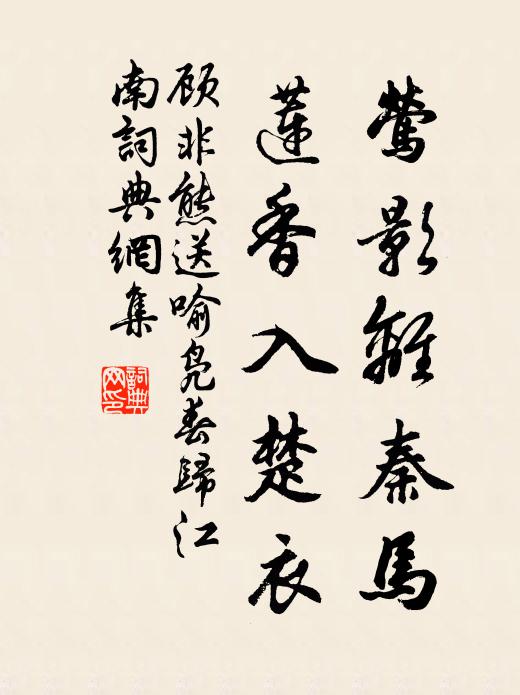 鶯影離秦馬
蓮香入楚衣
顧非熊送喻凫春歸江
南詞典網集
詞典
网印